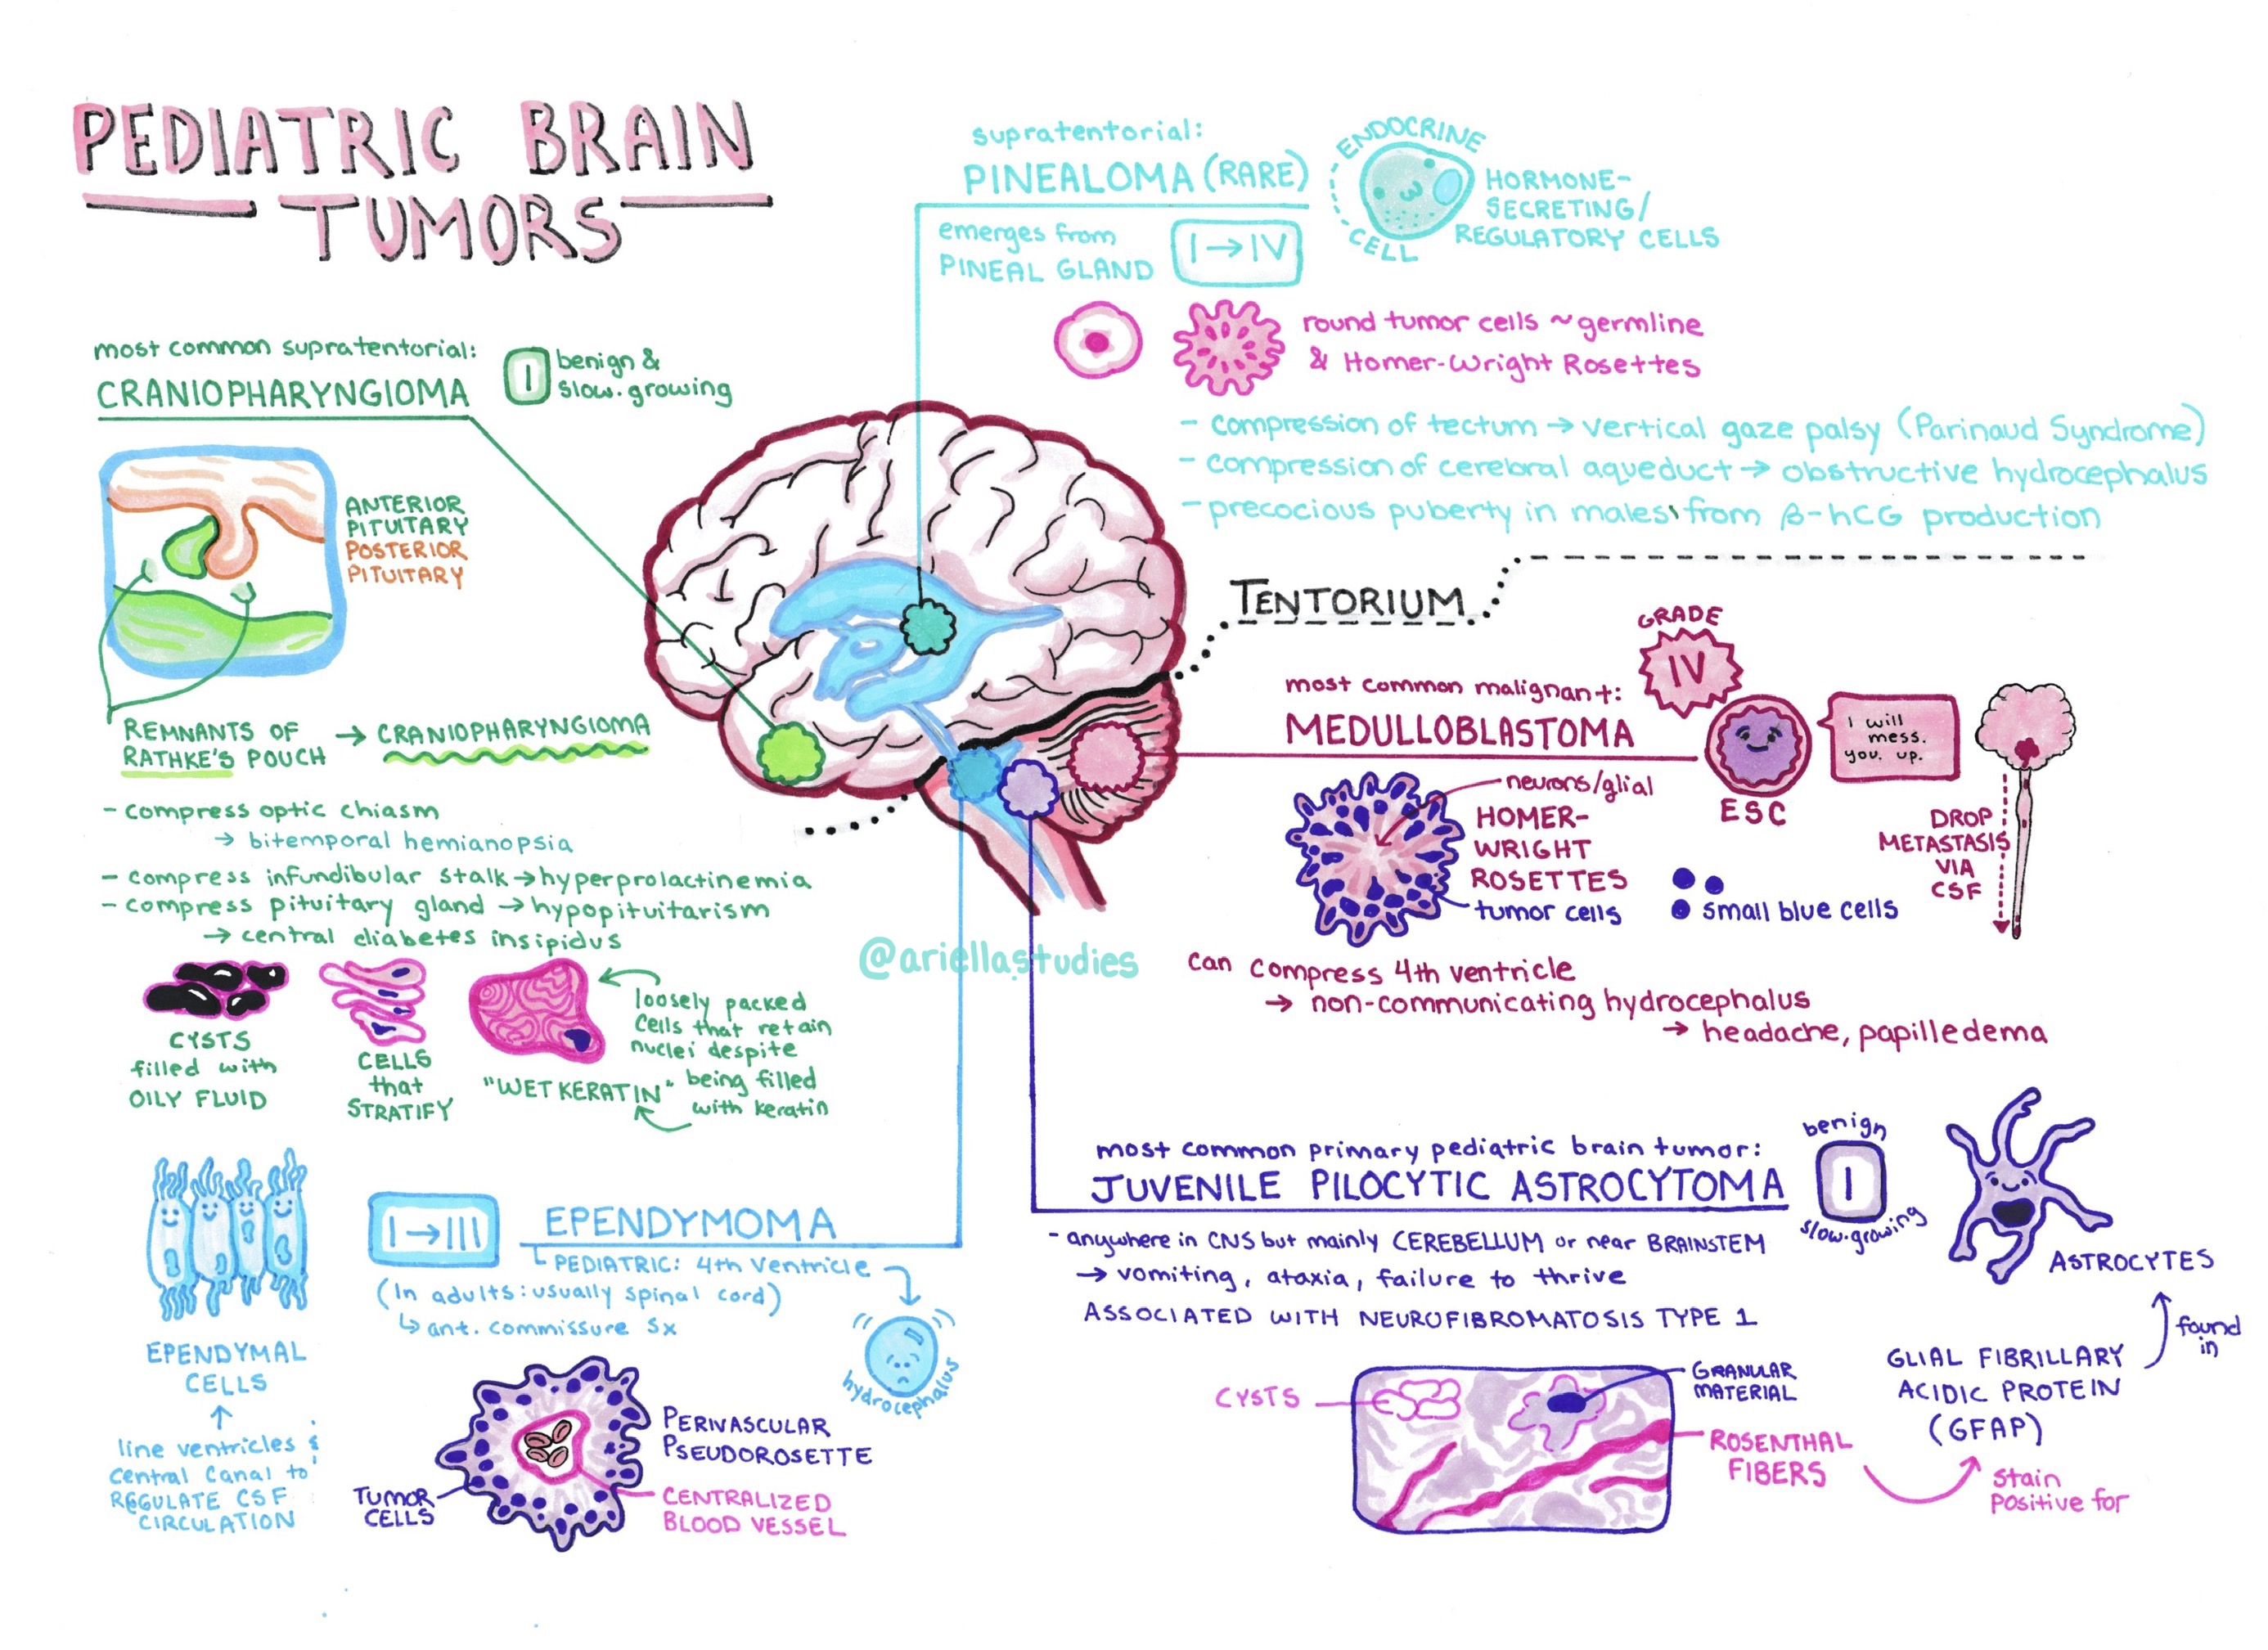 PEDIATRIC BRAIN
TUMORS
supratentorial:
PINEALOMA (RARE)
emerges from
PINEAL GLAND
I → IV
ENDOCRINE
CELL
HORMONE-
SECRETING/
REGULATORY CELLS
round tumor cells ~germline
& Homer-Wright Rosettes
- compression of tectum → vertical gaze palsy (Parinaud Syndrome)
- compression of cerebral aqueduct → obstructive hydrocephalus
- precocious puberty in males from β-hCG production
most common supratentorial:
CRANIOPHARYNGIOMA
I
benign &
slow-growing
ANTERIOR
PITUITARY
POSTERIOR
PITUITARY
REMNANTS OF
RATHKE'S POUCH
→ CRANIOPHARYNGIOMA
- compress optic chiasm
→ bitemporal hemianopsia
- compress infundibular stalk → hyperprolactinemia
- compress pituitary gland → hypopituitarism
→ central diabetes insipidus
CYSTS
filled with
OILY FLUID
CELLS
that
STRATIFY
"WET KERATIN"
loosely packed
cells that retain
nuclei despite
being filled
with keratin
TENTORIUM
most common malignant:
MEDULLOBLASTOMA
GRADE
IV
ESC
I will
mess.
you. up.
DROP
METASTASIS
VIA
CSF
neurons/glial
HOMER-
WRIGHT
ROSETTES
tumor cells
small blue cells
can compress 4th ventricle
→ non-communicating hydrocephalus
→ headache, papilledema
@ariellastudies
EPENDYMAL
CELLS
↑
line ventricles &
central canal to
REGULATE CSF
CIRCULATION
I → III
EPENDYMOMA
PEDIATRIC: 4th ventricle
(In adults: usually spinal cord)
↳ ant. commissure sx
hydrocephalus
PERIVASCULAR
PSEUDOROSETTE
TUMOR
CELLS
CENTRALIZED
BLOOD VESSEL
most common primary pediatric brain tumor:
JUVENILE PILOCYTIC ASTROCYTOMA
benign
I
slow-growing
- anywhere in CNS but mainly CEREBELLUM or near BRAINSTEM
→ vomiting, ataxia, failure to thrive
ASSOCIATED WITH NEUROFIBROMATOSIS TYPE 1
ASTROCYTES
found
in
GLIAL FIBRILLARY
ACIDIC PROTEIN
(GFAP)
CYSTS
GRANULAR
MATERIAL
ROSENTHAL
FIBERS
stain
positive for